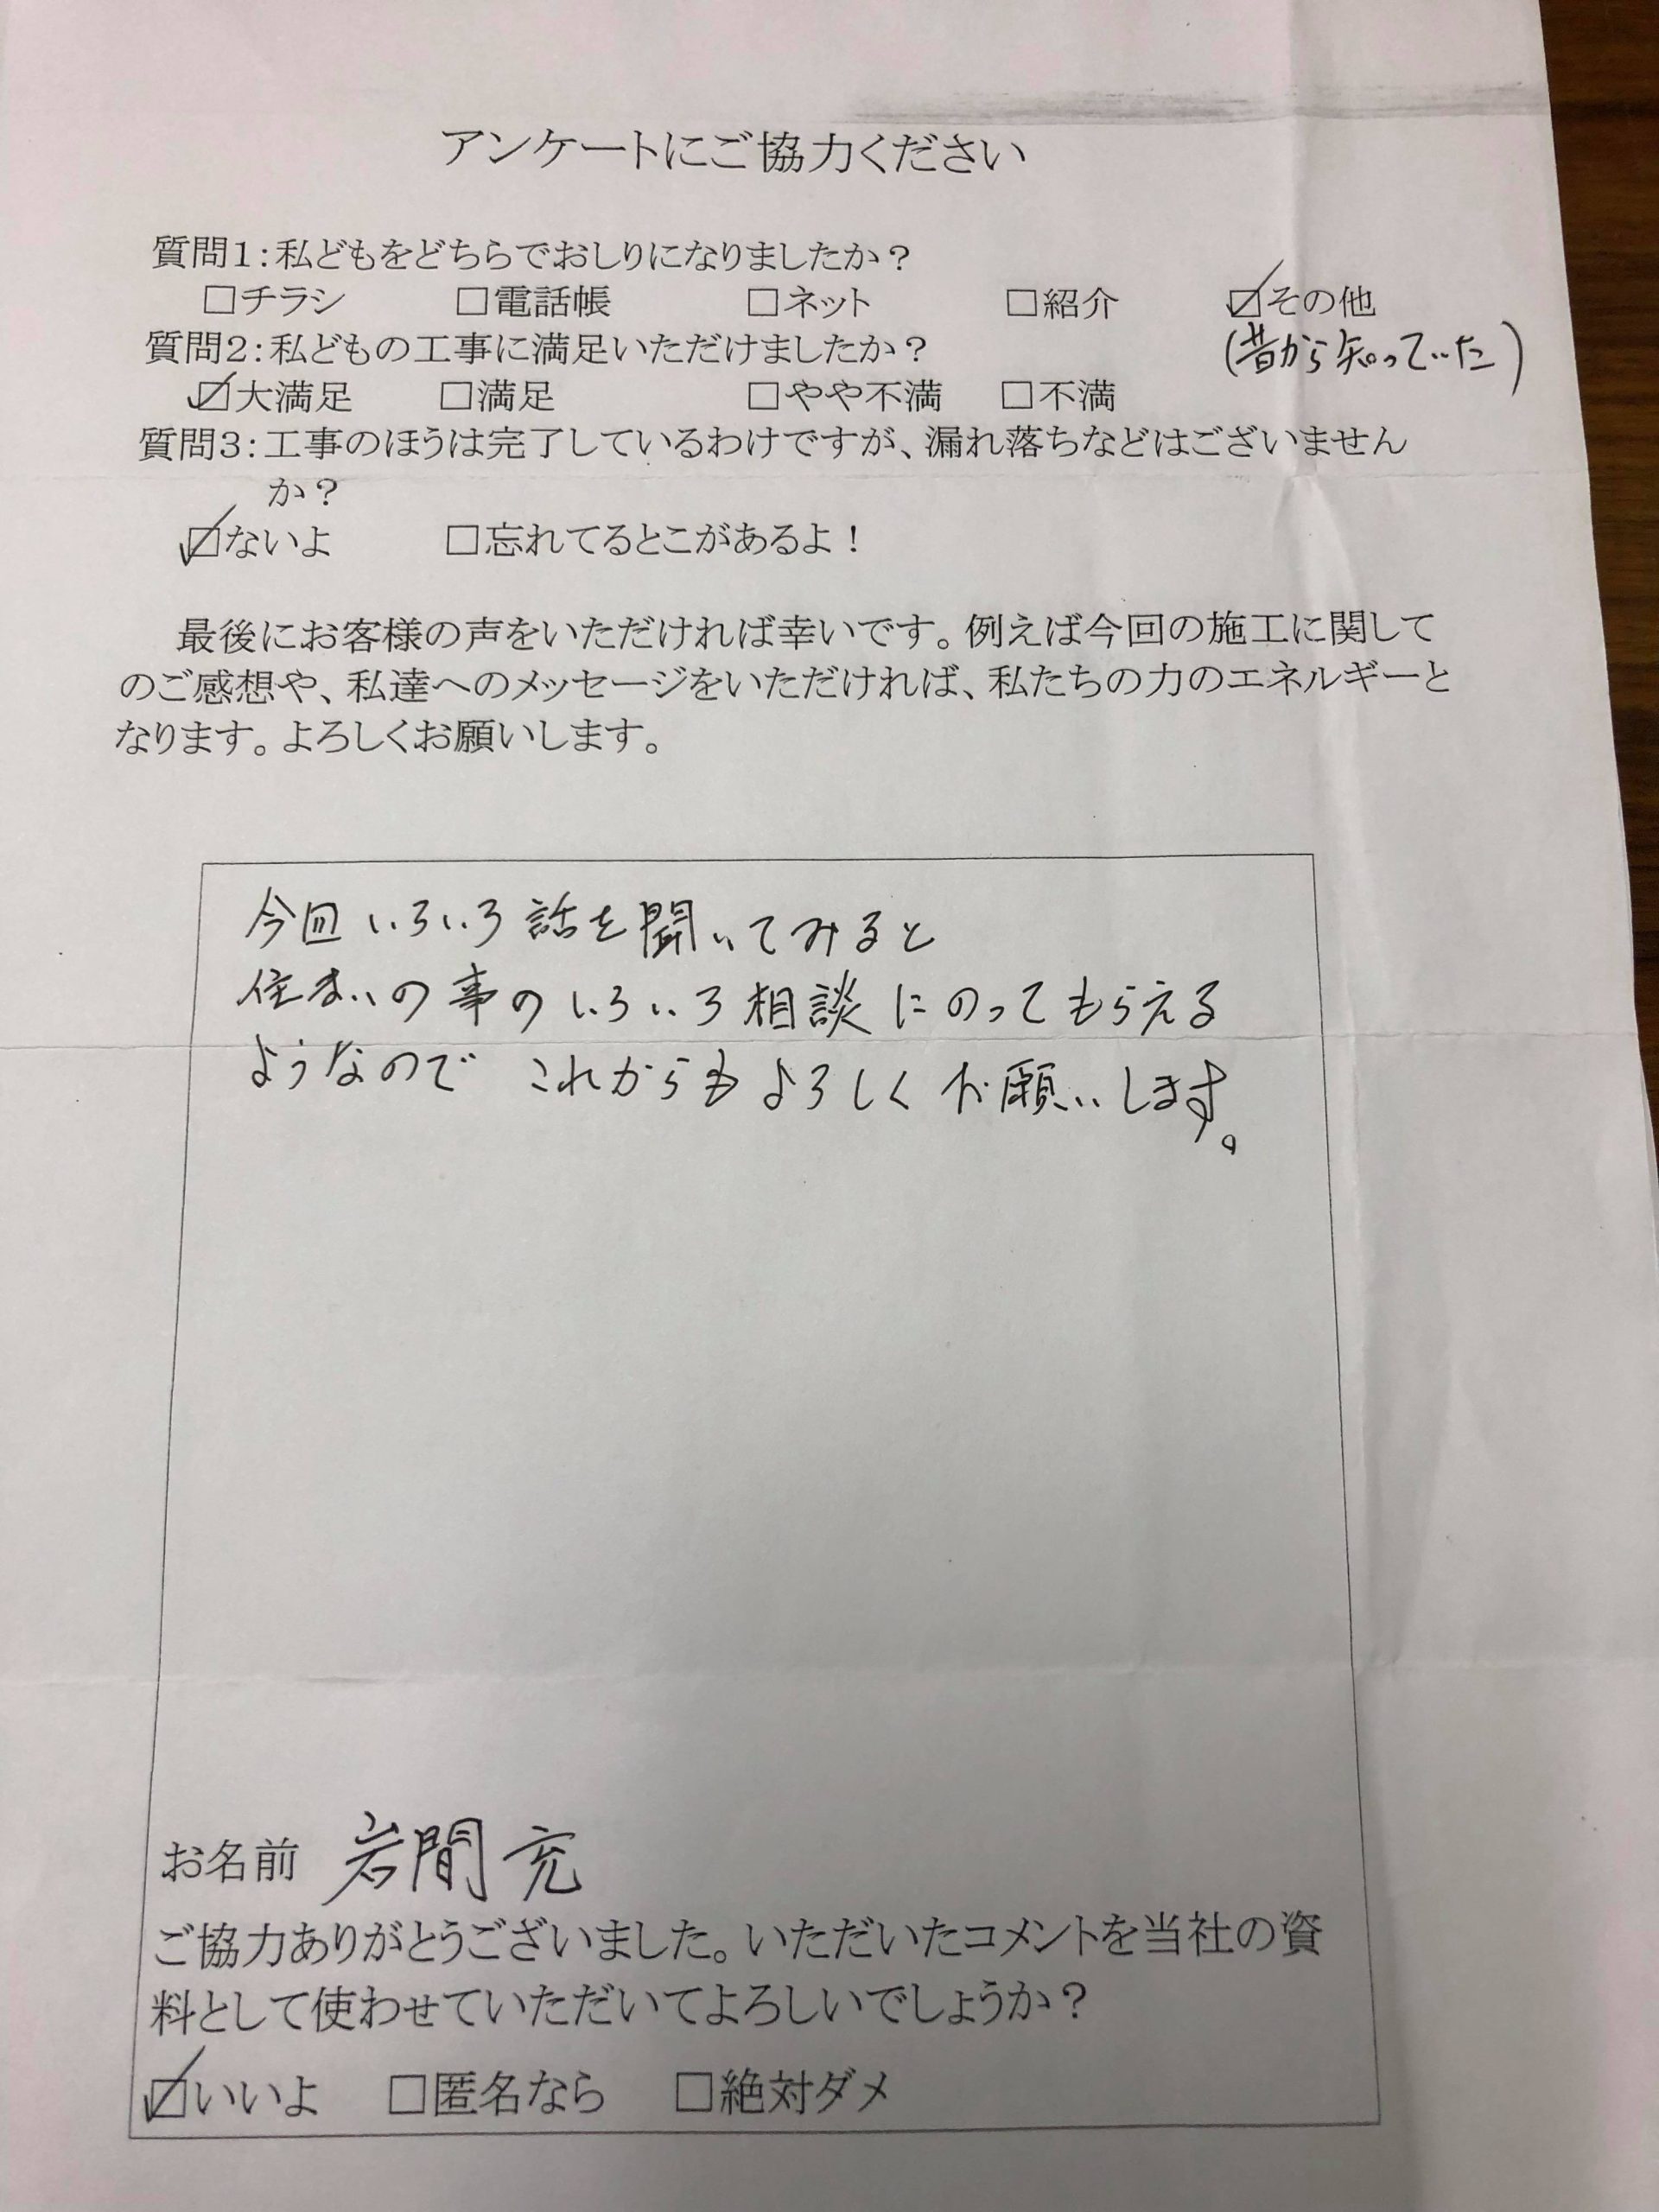 アンケートにご協力ください
質問1:私どもをどちらでおしりになりましたか？
□チラシ □電話帳 □ネット □紹介 ☑その他
(昔から知っていた)
質問2:私どもの工事に満足いただけましたか？
☑大満足 □満足 □やや不満 □不満
質問3:工事のほうは完了しているわけですが、漏れ落ちなどはございません
か？
☑ないよ □忘れてるとこがあるよ！
最後にお客様の声をいただければ幸いです。例えば今回の施工に関して
のご感想や、私達へのメッセージをいただければ、私たちの力のエネルギーと
なります。よろしくお願いします。
今回いろいろ話を聞いてみると
住まいの事のいろいろ相談にのってもらえる
ようなので これからもよろしくお願いします。
お名前 岩間 充
ご協力ありがとうございました。いただいたコメントを当社の資
料として使わせていただいてよろしいでしょうか？
☑いいよ □匿名なら □絶対ダメ